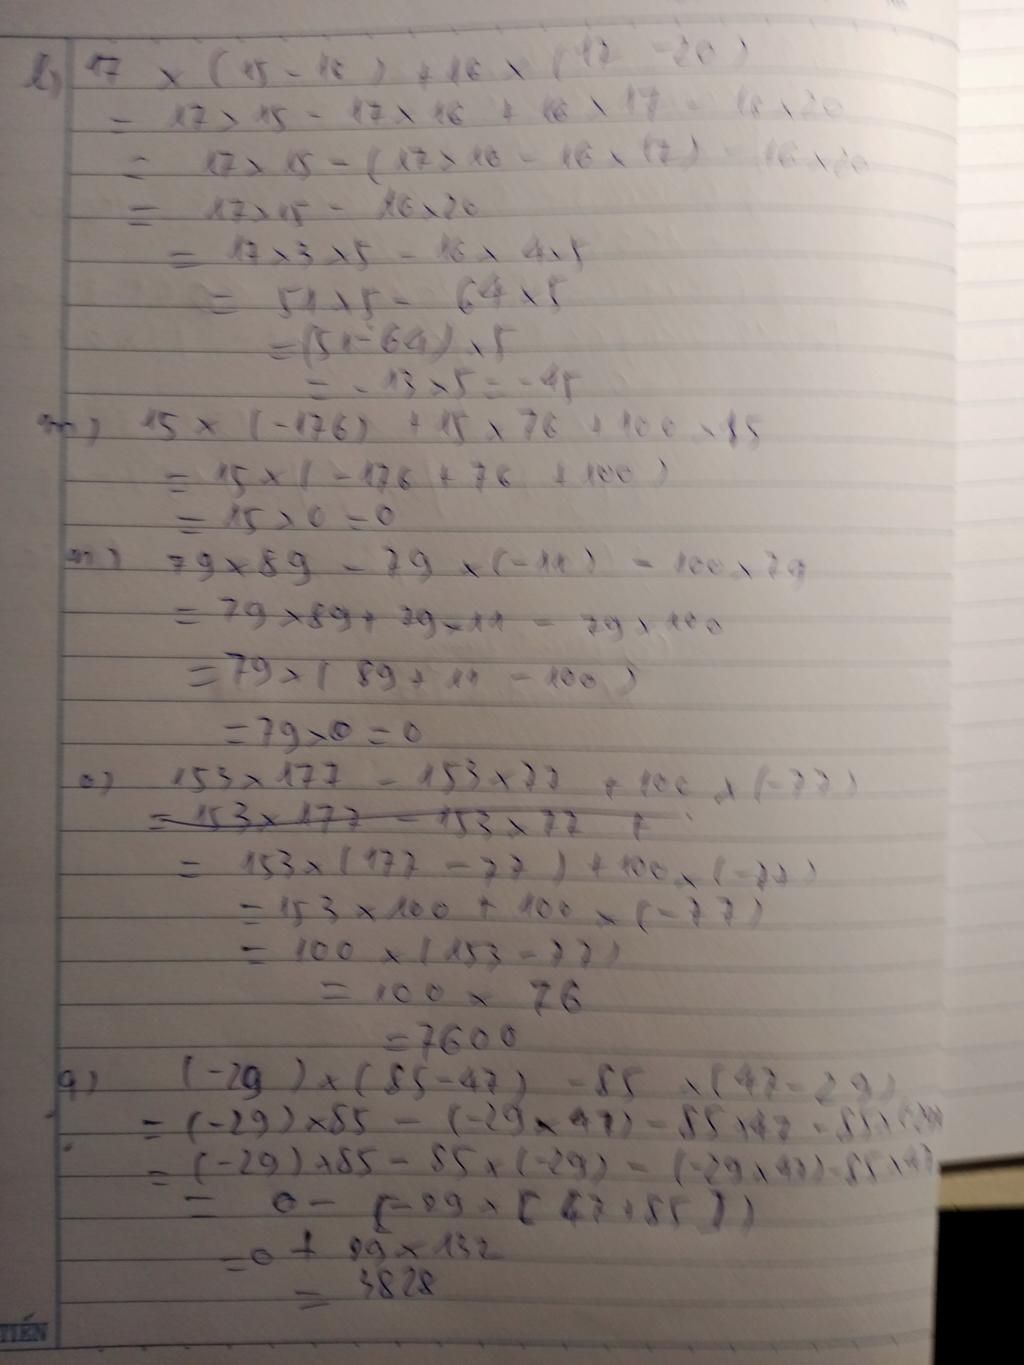 l) 17 × (15 - 16) + 16 × (17 - 20)
= 17 × 15 - 17 × 16 + 16 × 17 - 16 × 20
= 17 × 15 - (17 × 16 - 16 × 17) - 16 × 20
= 17 × 15 - 16 × 20
= 17 × 3 × 5 - 16 × 4 × 5
= 51 × 5 - 64 × 5
= (51 - 64) × 5
= - 13 × 5 = -45
m) 15 × (-176) + 15 × 76 + 100 × 15
= 15 × (-176 + 76 + 100)
= 15 × 0 = 0
n) 79 × 89 - 79 × (-11) - 100 × 79
= 79 × 89 + 79 × 11 - 79 × 100
= 79 × (89 + 11 - 100)
= 79 × 0 = 0
o) 153 × 177 - 153 × 77 + 100 × (-77)
= 153 × 177 - 153 × 77 +
= 153 × (177 - 77) + 100 × (-77)
= 153 × 100 + 100 × (-77)
= 100 × (153 - 77)
= 100 × 76
= 7600
q) (-29) × (85 - 47) - 85 × (47 - 29)
= (-29) × 85 - (-29 × 47) - 85 × 47 - 85 × (-29)
= (-29) × 85 - 85 × (-29) - (-29 × 47) - 85 × 47
= 0 - [-29 × [47 + 85])
= 0 + 29 × 132
= 3828
TIẾN